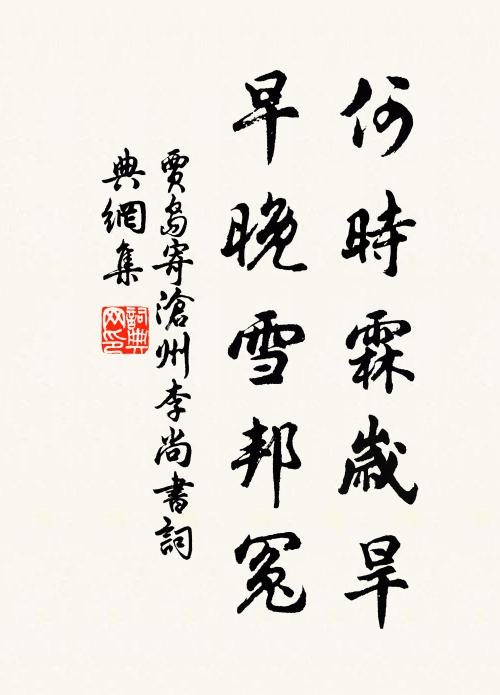 何時霖歲旱
早晚雪邦冤
賈島寄滄州李尚書詞
典網集
詞典
网印